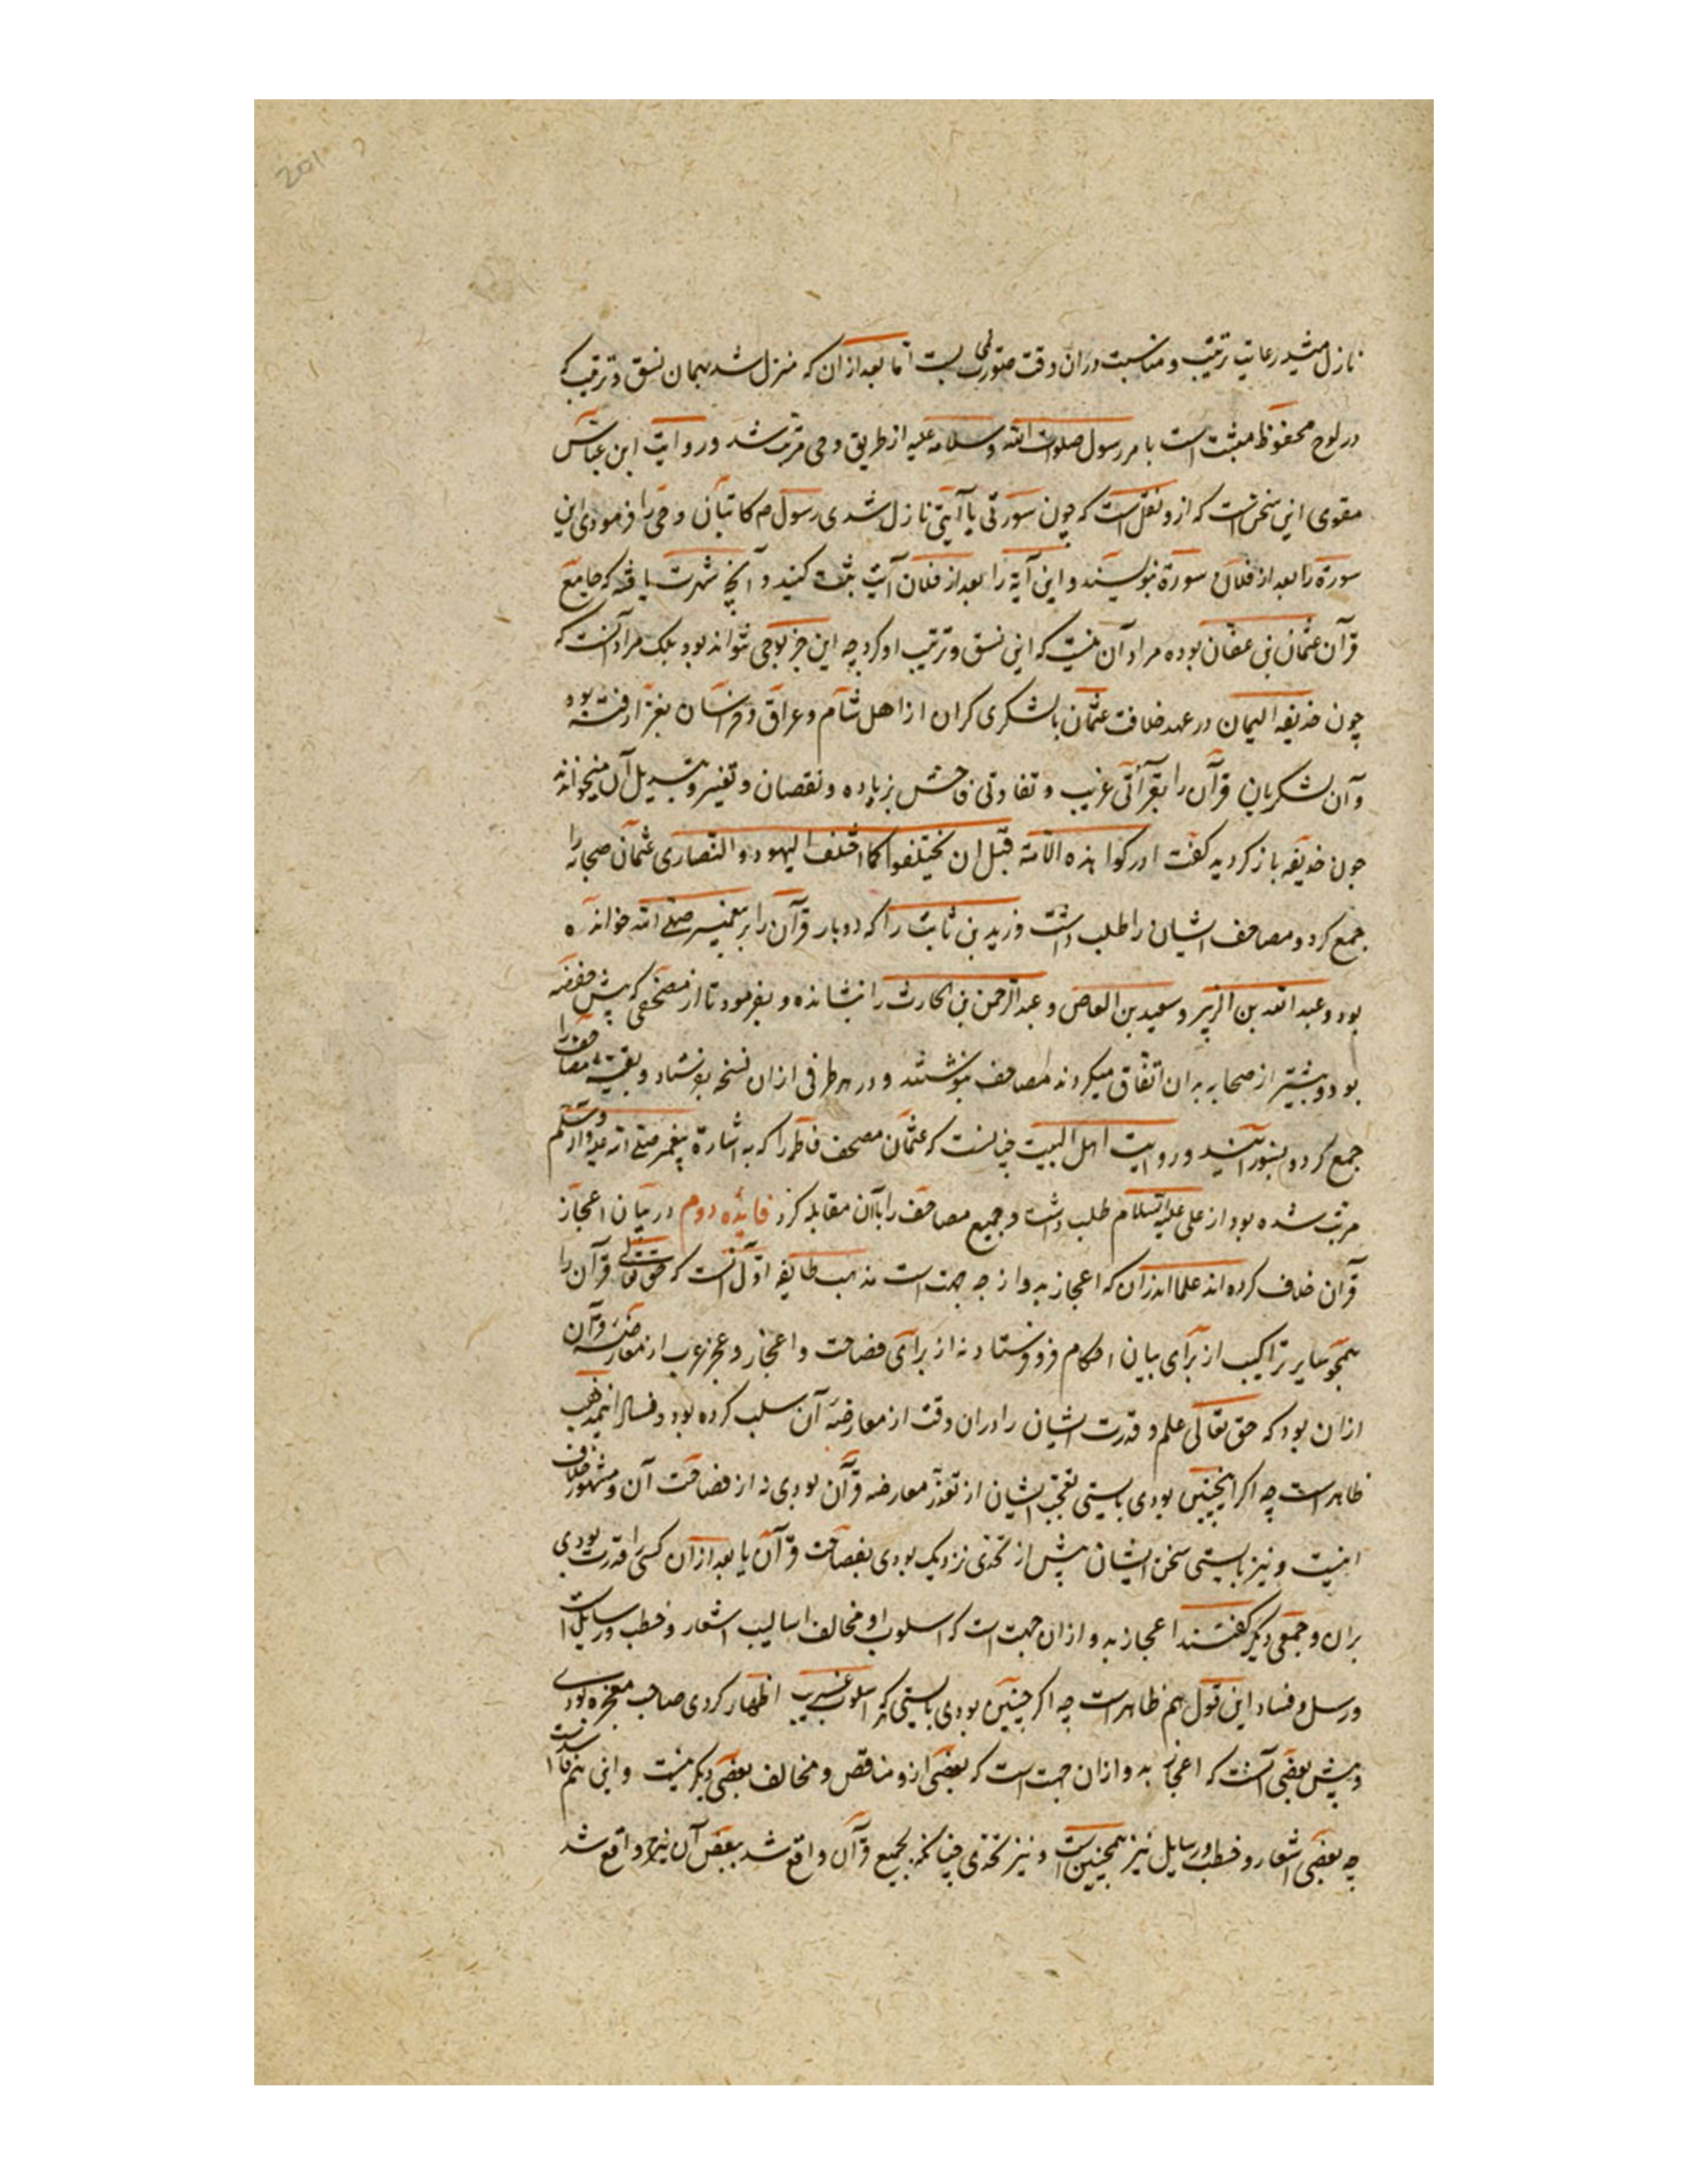 نازل میشد رعایت ترتیب و مناسبت دران وقت متصور نمی بست اما بعد ازان که منزل شد بهمان نسق و ترتیب که
در لوح محفوظ مثبت است با مر رسول صلوات الله و سلامه علیه از طریق وحی مرتب شد و روایت ابن عباس
مقوی این سخن است که ازو نقل است که چون سورتی یا آیتی نازل شدی رسول م کاتبان وحی را فرمودی این
سورة را بعد از فلان سورة نبویسند و این آیة را بعد از فلان آیت ثبت کنید و آنچه شهرت یافته که جامع
قرآن عثمان بن عفان بوده مراد آن نیست که این نسق و ترتیب او کرد چه این جز بوحی نتواند بود بلک مراد آنست که
چون حذیفه الیمان در عهد خلافت عثمان با لشکری کران از اهل شام و عراق و خراسان بغزا رفته بود
و آن لشکریان قرآن را بقرآتی غریب و تفاوتی فاحش بزیاده و نقصان و تغییر و تبدیل آن میخواندند
چون حذیفه باز کردید کفت ادرکوا هذه الامة قبل ان یختلفوا کما اختلف الیهود و النصاری عثمان صحابه را
جمع کرد و مصاحف ایشان را طلب داشت و زید بن ثابت را که دوبار قرآن را بر پیغمبر صلی الله خوانده
بود و عبد الله بن الزبیر و سعید بن العاص و عبد الرحمن بن الحارث را بنشانده و بفرمود تا از مصحفی که پیش حفصه
بود و بیشتر از صحابه به ان اتفاق میکردند مصاحف بنوشتند و در هر طرفی ازان نسخه بفرستاد و بقیه مصاحف را
جمع کرد و بسوزانید و روایت اهل البیت چنانست که عثمان مصحف فاطمه را که به اشارة پیغمبر صلی الله علیه و اله و سلم
مرتب شده بود از علی علیه السلام طلب داشت و جمیع مصاحف را باآن مقابله کرد فائده دوم در بیان اعجاز
قرآن خلاف کرده اند علما اندران که اعجاز بدو از چه جهت است مذهب طایفه اول آنست که حق تعالی قرآن را
همچو سایر تراکیب از برآی بیان احکام فرو فرستاد نه از برآی فصاحت و اعجاز و عجز عرب از معارضه قرآن
ازان بود که حق تعالی علم و قدرت ایشان را دران وقت از معارضه آن سلب کرده بود و فساد این مذهب
ظاهر است چه اکر اینچنین بودی بایستی تعجب ایشان از تعذر معارضه قرآن بودی نه از فصاحت آن و مشهور خلاف
اینیت و نیز بایستی سخن ایشان پیش از تحدی نزدیک بودی بفصاحت قرآن یا بعد ازان کسی را قدرت بودی
بران و جمعی دیکر کفتند اعجاز بدو ازان جهت است که اسلوب او مخالف اسالیب اشعار و خطب و رسایل است
ورسل و فساد این قول هم ظاهر است چه اکر چنین بودی بایستی که هر اسلوب غریب اظهار کردی صاحب معجزه بودی
و پیش بعضی آنست که اعجاز بدو ازان جهت است که بعضی ازو مناقض و مخالف بعضی دیکر نیست و این هم فاسد است
چه بعضی اشعار و خطب و رسایل نیز همچنین است و نیز تحدی چنانکه بجمیع قرآن واقع شد ببعض آن نیز واقع شد